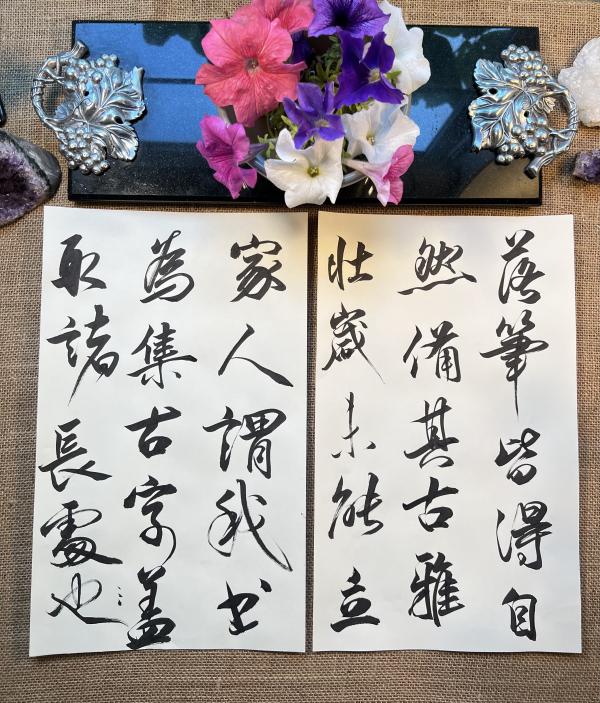 落筆皆得自
然備其古雅
壯歲未能立
家人謂我書
為集古字盖
取諸長處也